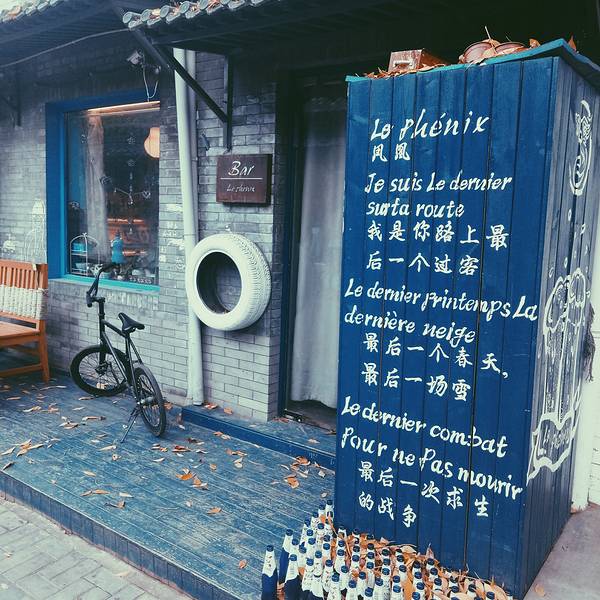 Bar
Le phénix
Le Phénix
凤凰
Je suis Le dernier
sur ta route
我是你路上最
后一个过客
Le dernier printemps La
dernière neige
最后一个春天,
最后一场雪
Le dernier combat
Pour ne Pas mourir
最后一次求生
的战争